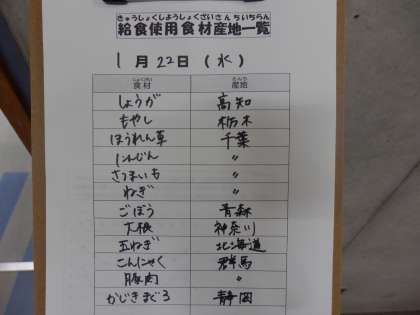 きゅうしょくしようしょくざいさんちいちらん
給食使用食材産地一覧
1月22日(水)
しょくざい さんち
食材 産地
しょうが 高知
もやし 栃木
ほうれん草 千葉
にんじん 〃
さつまいも 〃
ねぎ 〃
ごぼう 青森
大根 神奈川
玉ねぎ 北海道
こんにゃく 群馬
豚肉 〃
かじきまぐろ 静岡